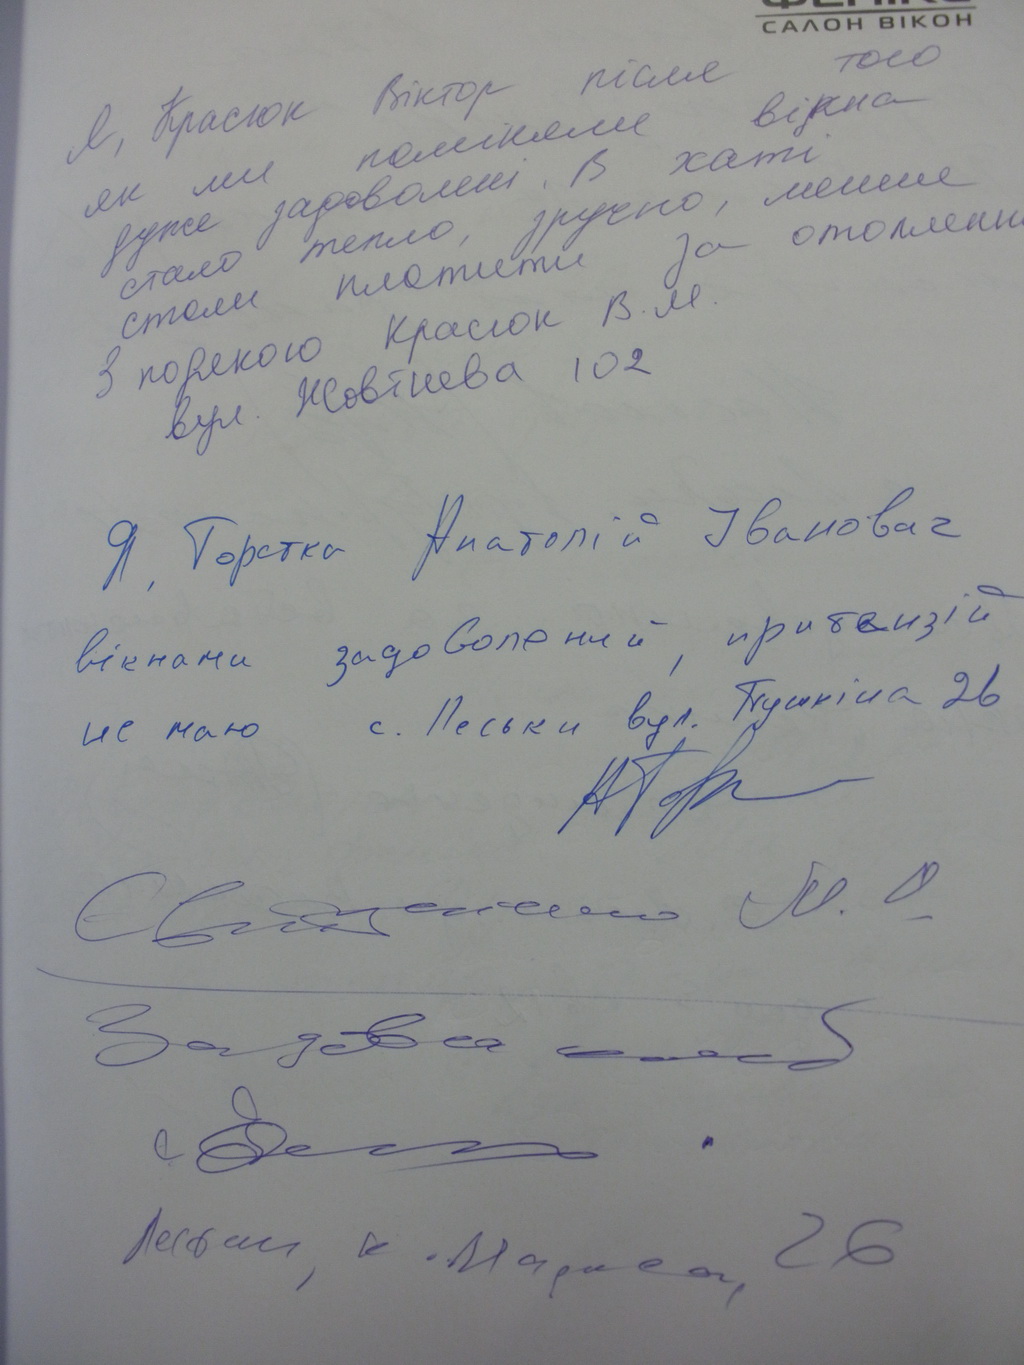 САЛОН ВІКОН
Я, Красюк Віктор після того
як ми поміняли вікна
дуже задоволені. В хаті
стало тепло, зручно, менше
стали платити за отоплення
З подякою Красюк В.М.
вул. Жовтнева 102
Я, Горстка Анатолій Іванович
вікнами задоволений, притензій
не маю с. Песьки вул. Пушкіна 26
М.
Песьки, К. Маркса, 26